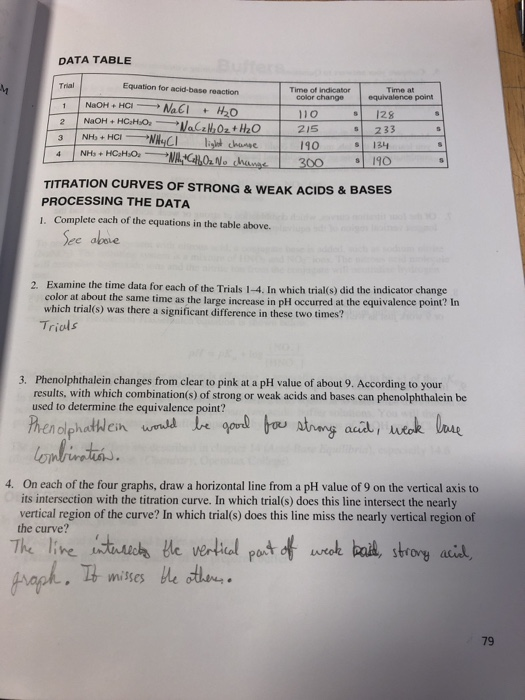 DATA TABLE
Trial Equation for acid-base reaction Time of indicator color change Time at equivalence point
1 NaOH + HCl → NaCl + H₂O 110 s 128 s
2 NaOH + HC₂H₃O₂ → NaC₂H₃O₂ + H₂O 215 s 233 s
3 NH₃ + HCl → NH₄Cl light change 190 s 134 s
4 NH₃ + HC₂H₃O₂ → No change 300 s 190 s
TITRATION CURVES OF STRONG & WEAK ACIDS & BASES
PROCESSING THE DATA
1. Complete each of the equations in the table above.
See above
2. Examine the time data for each of the Trials 1–4. In which trial(s) did the indicator change
color at about the same time as the large increase in pH occurred at the equivalence point? In
which trial(s) was there a significant difference in these two times?
Trials
3. Phenolphthalein changes from clear to pink at a pH value of about 9. According to your
results, with which combination(s) of strong or weak acids and bases can phenolphthalein be
used to determine the equivalence point?
Phenolphathlein would be good for strong acid, weak base
combination.
4. On each of the four graphs, draw a horizontal line from a pH value of 9 on the vertical axis to
its intersection with the titration curve. In which trial(s) does this line intersect the nearly
vertical region of the curve? In which trial(s) does this line miss the nearly vertical region of
the curve?
The line intersects the vertical part of weak strong acid,
graph. It misses the others.
79